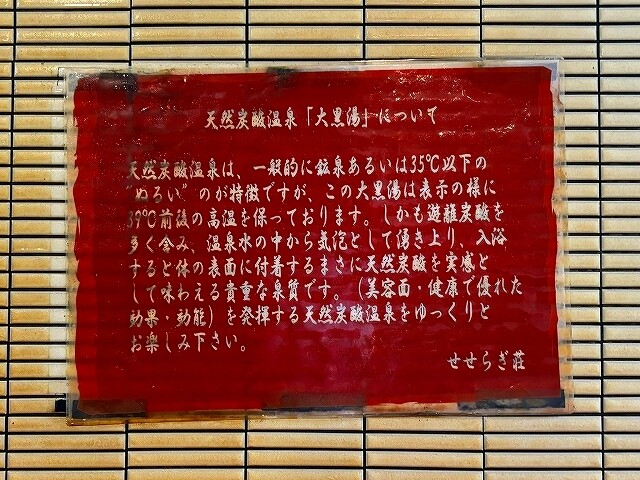 天然炭酸温泉「大黒湯」について
天然炭酸温泉は、一般的に鉱泉あるいは35℃以下の
"ぬるい"のが特徴ですが、この大黒湯は表示の様に
39℃前後の高温を保っております。しかも遊離炭酸を
多く含み、温泉水の中から気泡として湧き上り、入浴
すると体の表面に付着するまさに天然炭酸を実感と
して味わえる貴重な泉質です。（美容面・健康で優れた
効果・効能）を発揮する天然炭酸温泉をゆっくりと
お楽しみ下さい。
せせらぎ荘